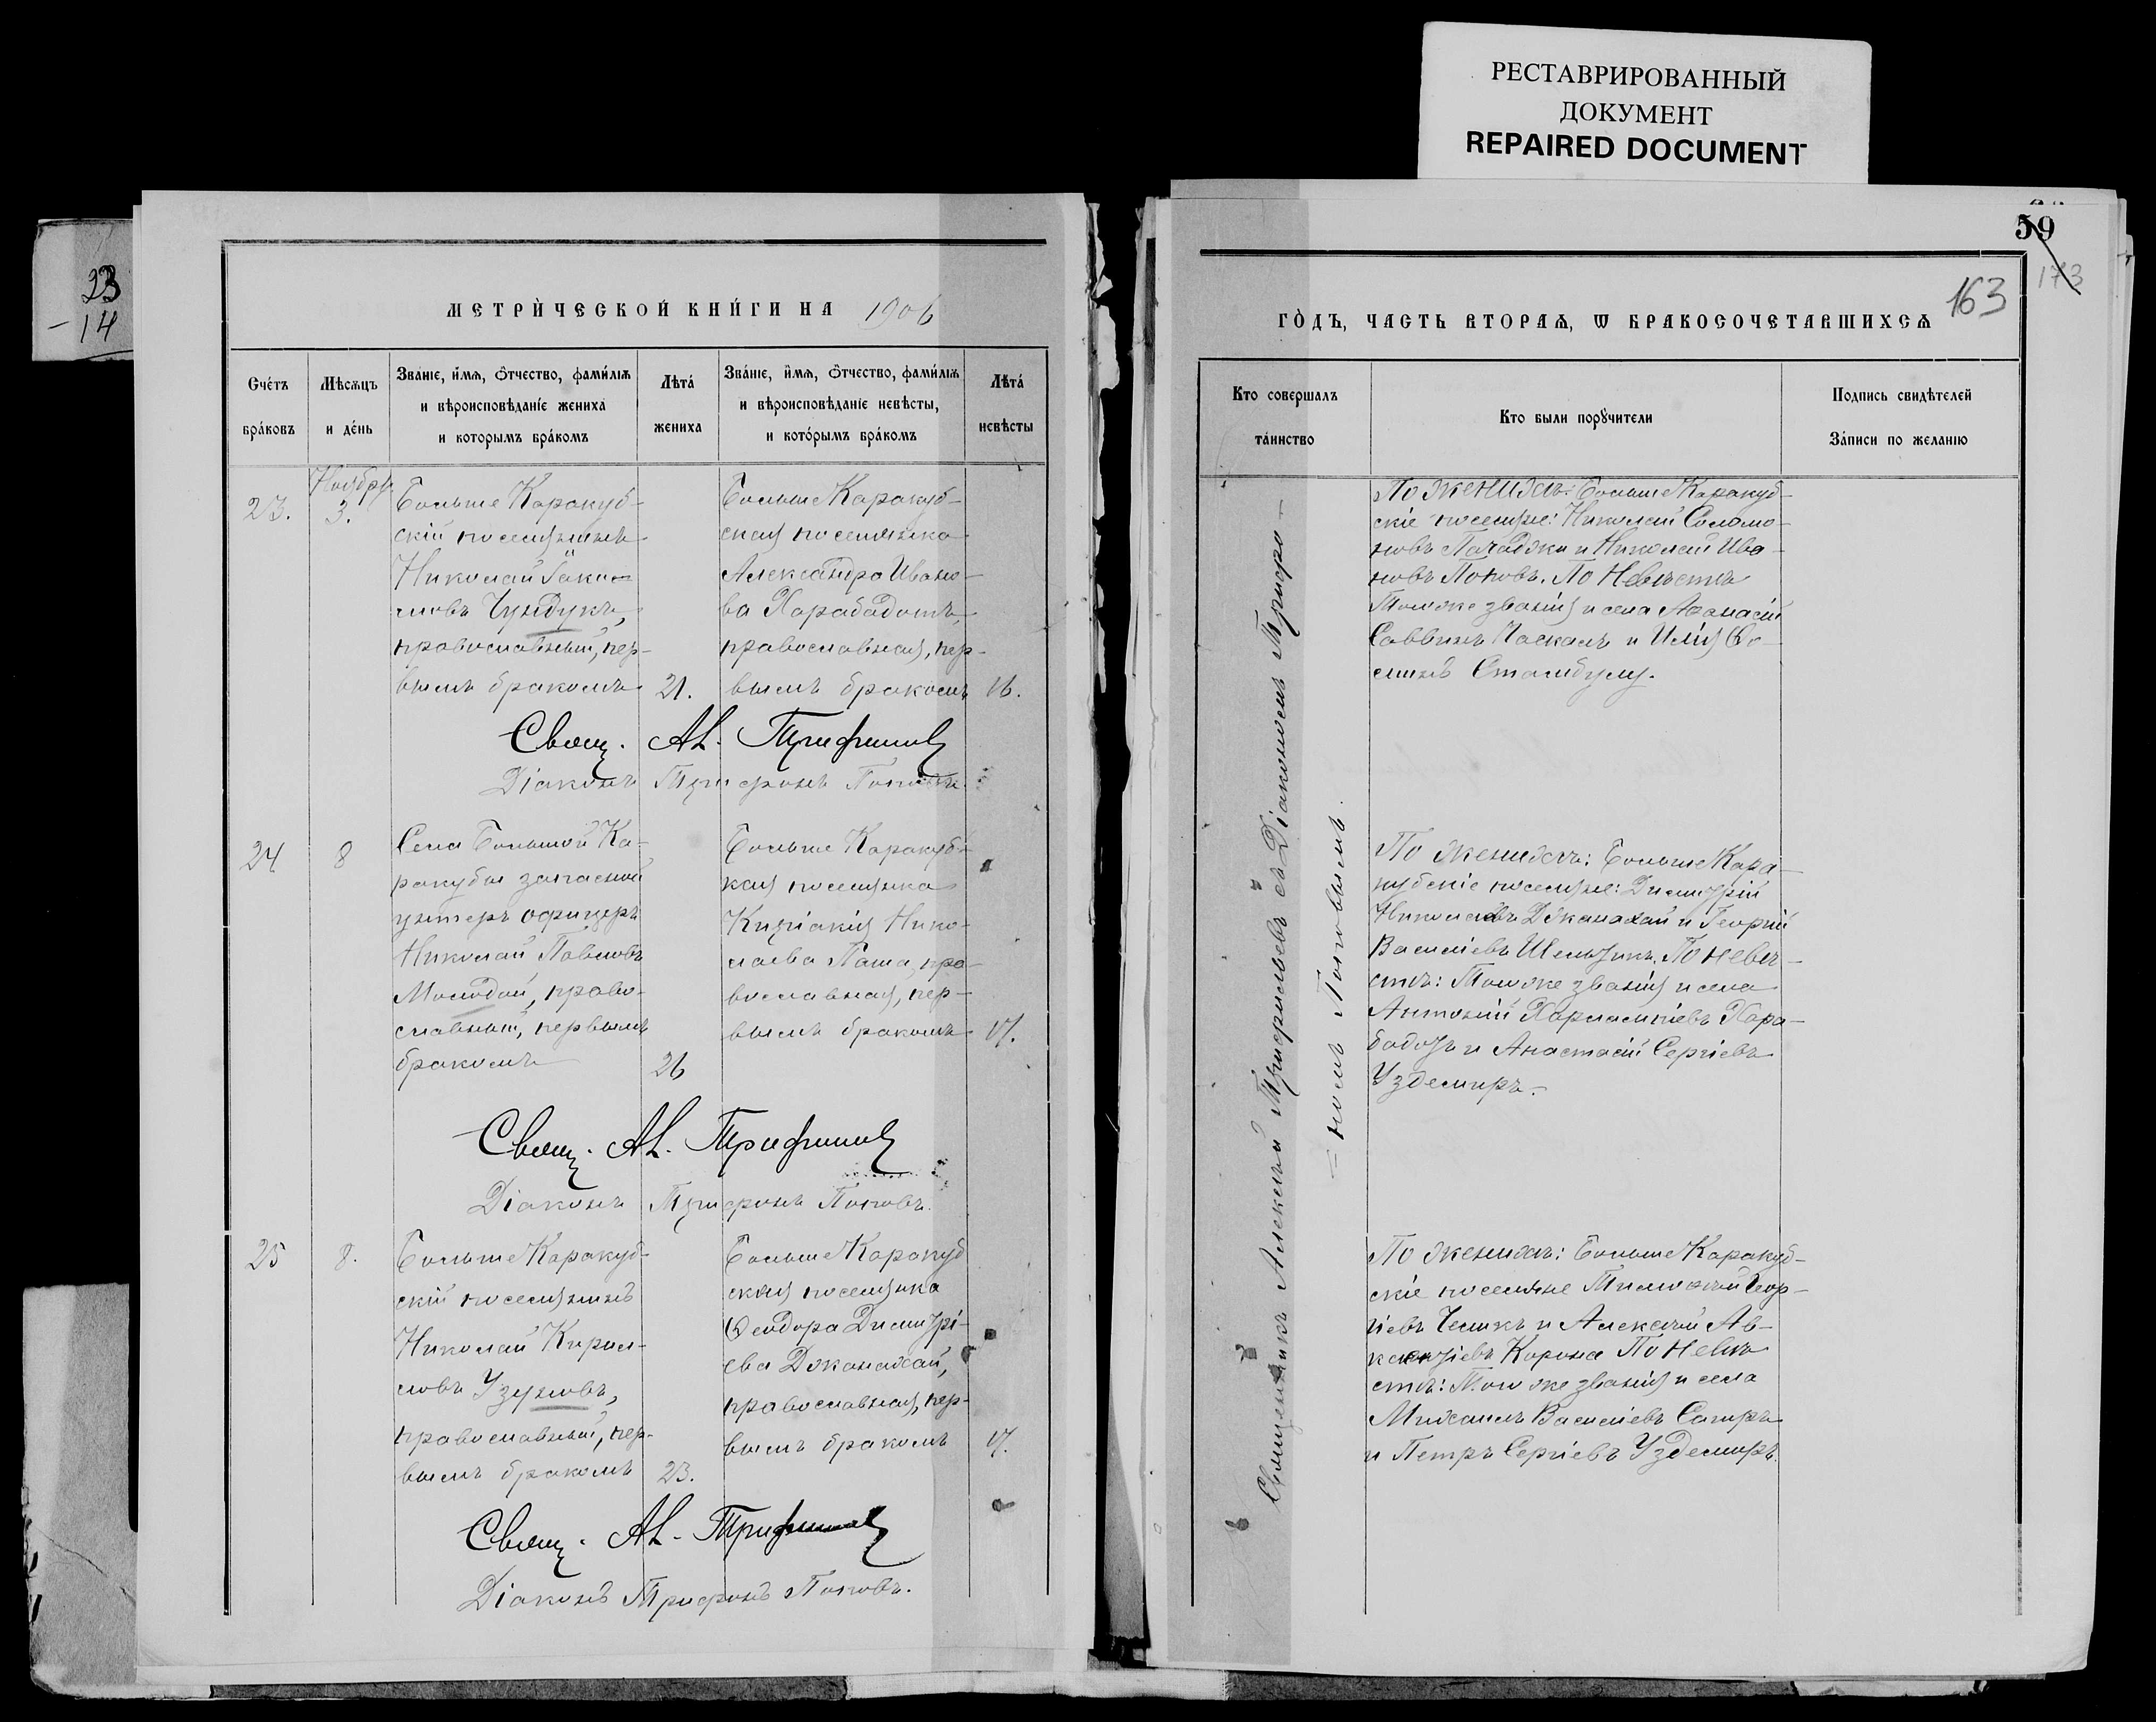 РЕСТАВРИРОВАННЫЙ
ДОКУМЕНТ
REPAIRED DOCUMENT
23
-14
МЕТРИ́ЧЕСКОЙ КНИ́ГИ НА 1906
Сче́тъ бра́ковъ
Мѣсѧцъ и де́нь
Зва́нїе, и́мѧ, ѻ́тчество, фами́лїѧ
и вѣроисповѣданїе жениха
и которымъ бра́комъ
Лѣта́ жениха
Зва́нїе, и́мѧ, ѻ́тчество, фами́лїѧ
и вѣроисповѣданїе невѣсты,
и кото́рымъ бра́комъ
Лѣта́ невѣсты
Ноября
23.
3.
Больше Каракуб-
скій поселянинъ
Николай Іаки-
мовъ Чундукъ,
православный, пер-
вымъ бракомъ
21.
Больше Каракуб-
ская поселянка
Александра Ивано-
ва Харабадотъ,
православная, пер-
вымъ бракомъ
16.
Свящ. Ал. Трифильевъ
Діаконъ Трифонъ Поповъ
24
8
Села Большой Ка-
ракубы запасной
унтеръ офицеръ
Николай Павловъ
Молодой, право-
славный, первымъ
бракомъ
26
Больше Каракуб-
кая поселянка
Киріакія Нико-
лаева Паша, пра-
вославная, пер-
вымъ бракомъ
17.
Свящ. Ал. Трифильевъ
Діаконъ Трифонъ Поповъ.
25
8.
Больше Каракуб-
скій поселянинъ
Николай Кирил-
ловъ Узуновъ,
православный, пер-
вымъ бракомъ
23.
Больше Каракуб
ская поселянка
Ѳеодора Димитрі-
ева Джанахай,
православная, пер-
вымъ бракомъ
17.
Свящ. Ал. Трифильевъ
Діаконъ Трифонъ Поповъ.
59
173
163
ГО́ДЪ, ЧАСТЬ ВТОРАѦ, Ѿ БРАКОСОЧЕТАВШИХСѦ
Кто совершалъ
та́инство
Кто были порꙋчители
Подпись свидѣтелей
За́писи по желанїю
Священникъ Алексѣй Трифильевъ съ Діакономъ Трифо-
=номъ Поповымъ.
По женихѣ: Больше Каракуб-
скіе поселяне: Николай Соломо-
новъ Пачаджи и Николай Ива-
новъ Поповъ. По Невѣстѣ
Тогоже званія и села Аѳанасій
Саввинъ Часкалъ и Илія Ѳо-
минъ Стамбулу.
По женихѣ: Больше Кара-
кубскіе поселяне: Димитрій
Николаевъ Джанахай и Георгій
Василіевъ Шельтукъ. По невѣ-
стѣ: Тогоже званія и села
Антоній Харлампіевъ Хара-
бадотъ и Анастасій Сергіевъ
Уздемиръ.-
По женихѣ: Больше Каракуб-
скіе поселяне Тимоѳей Геор-
гіевъ Челикъ и Алексѣй Ав-
ксентіевъ Корона По Невѣ
стѣ: Тогоже званія и села
Михаилъ Василіевъ Сатиръ
и Петръ Сергіевъ Уздемиръ.